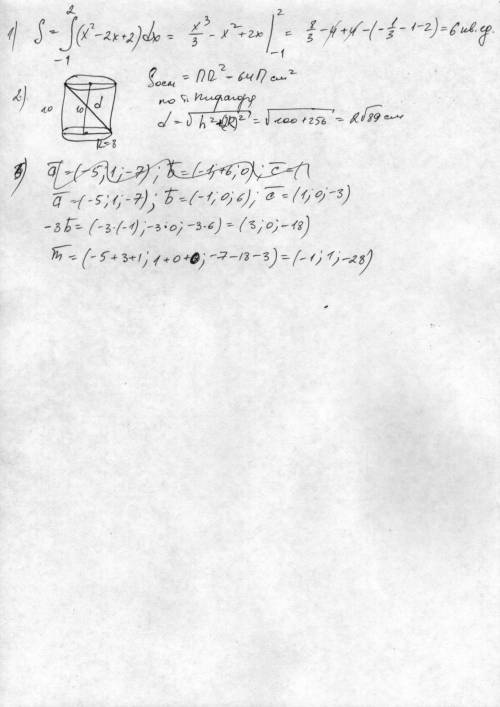 1) S = ∫₋₁² (x²-2x+2)dx = x³/3 - x² + 2x |₋₁² = 8/3 - 4 + 4 - (-1/3 - 1 - 2) = 6 кв. ед.
2) Sосн = ПR² - 64П см²
по т. Пифагора
10 10 d d = √(h²+(2R)²) = √(100+256) = 2√89 см
R=8
3) a̅ = (-5; 1; -7); b̅ = (-1; +6; 0); c̅ = (1
a̅ = (-5; 1; -7); b̅ = (-1; 0; 6); c̅ = (1; 0; -3)
-3b̅ = (-3·(-1); -3·0; -3·6) = (3; 0; -18)
m̅ = (-5+3+1; 1+0+0; -7-18-3) = (-1; 1; -28)